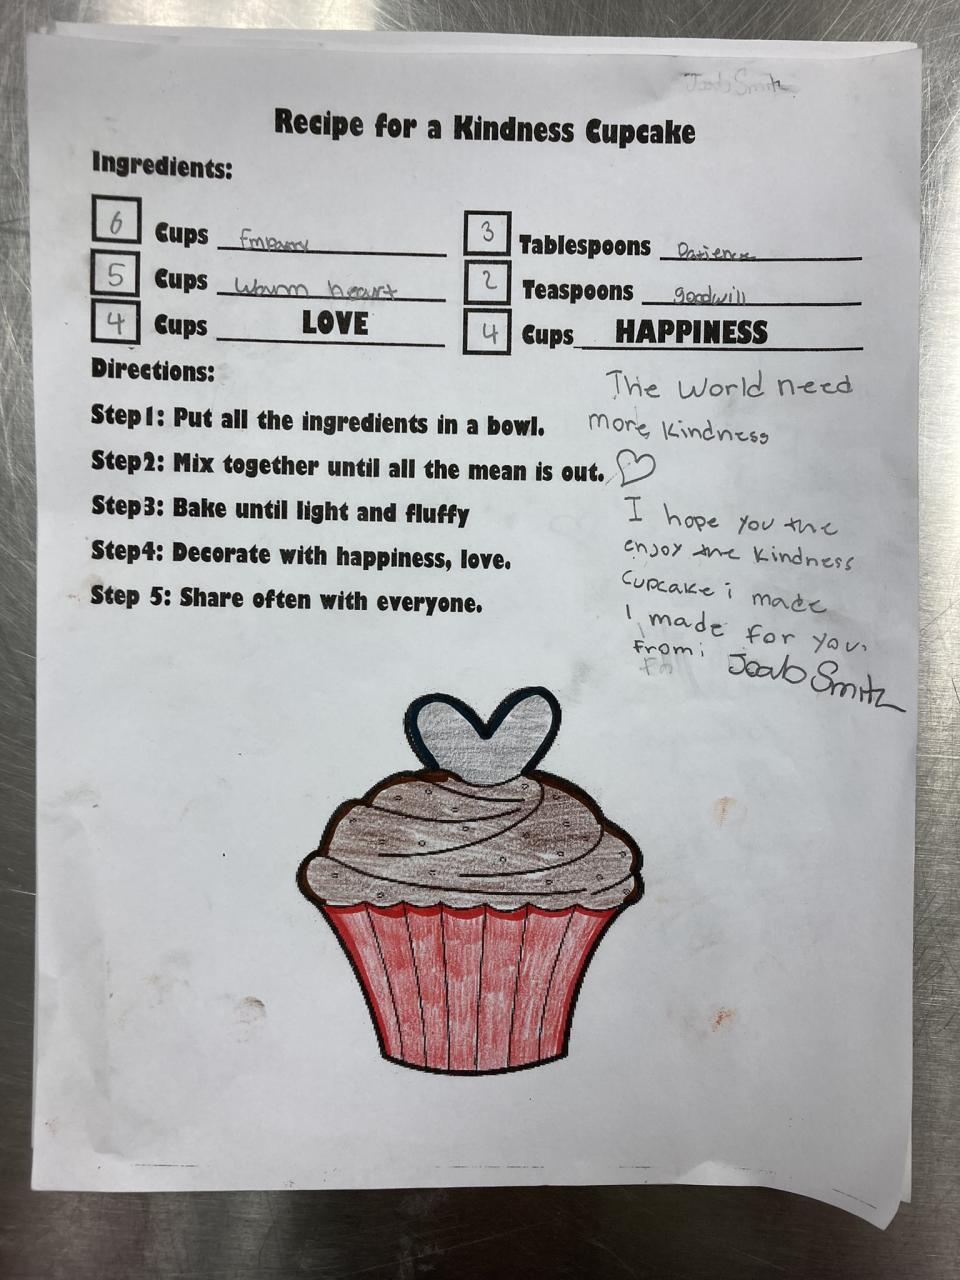 Jacob Smith
Recipe for a Kindness Cupcake
Ingredients:
6 Cups Empathy
3 Tablespoons Patience
5 Cups warm heart
2 Teaspoons goodwill
4 Cups LOVE
4 Cups HAPPINESS
Directions:
Step1: Put all the ingredients in a bowl.
Step2: Mix together until all the mean is out.
Step3: Bake until light and fluffy
Step4: Decorate with happiness, love.
Step 5: Share often with everyone.
The world need
more kindness
I hope you the
enjoy the kindness
cupcake i made
I made for you.
From: Jacob Smith